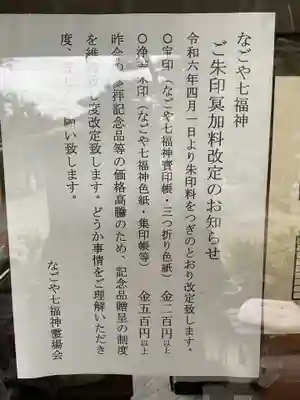 なごや七福神
ご朱印冥加料改定のお知らせ
令和六年四月一日より朱印料をつぎのとおり改定致します。
〇宝印(なごや七福神寶印帳・三つ折り色紙) 金二百円以上
〇浄 朱印(なごや七福神色紙・集印帳等) 金五百円以上
昨今の 参拝記念品等の価格高騰のため、記念品贈呈の制度
を維 度改定致します。どうか事情をご理解いただき
度、 願い致します。
なごや七福神霊場会